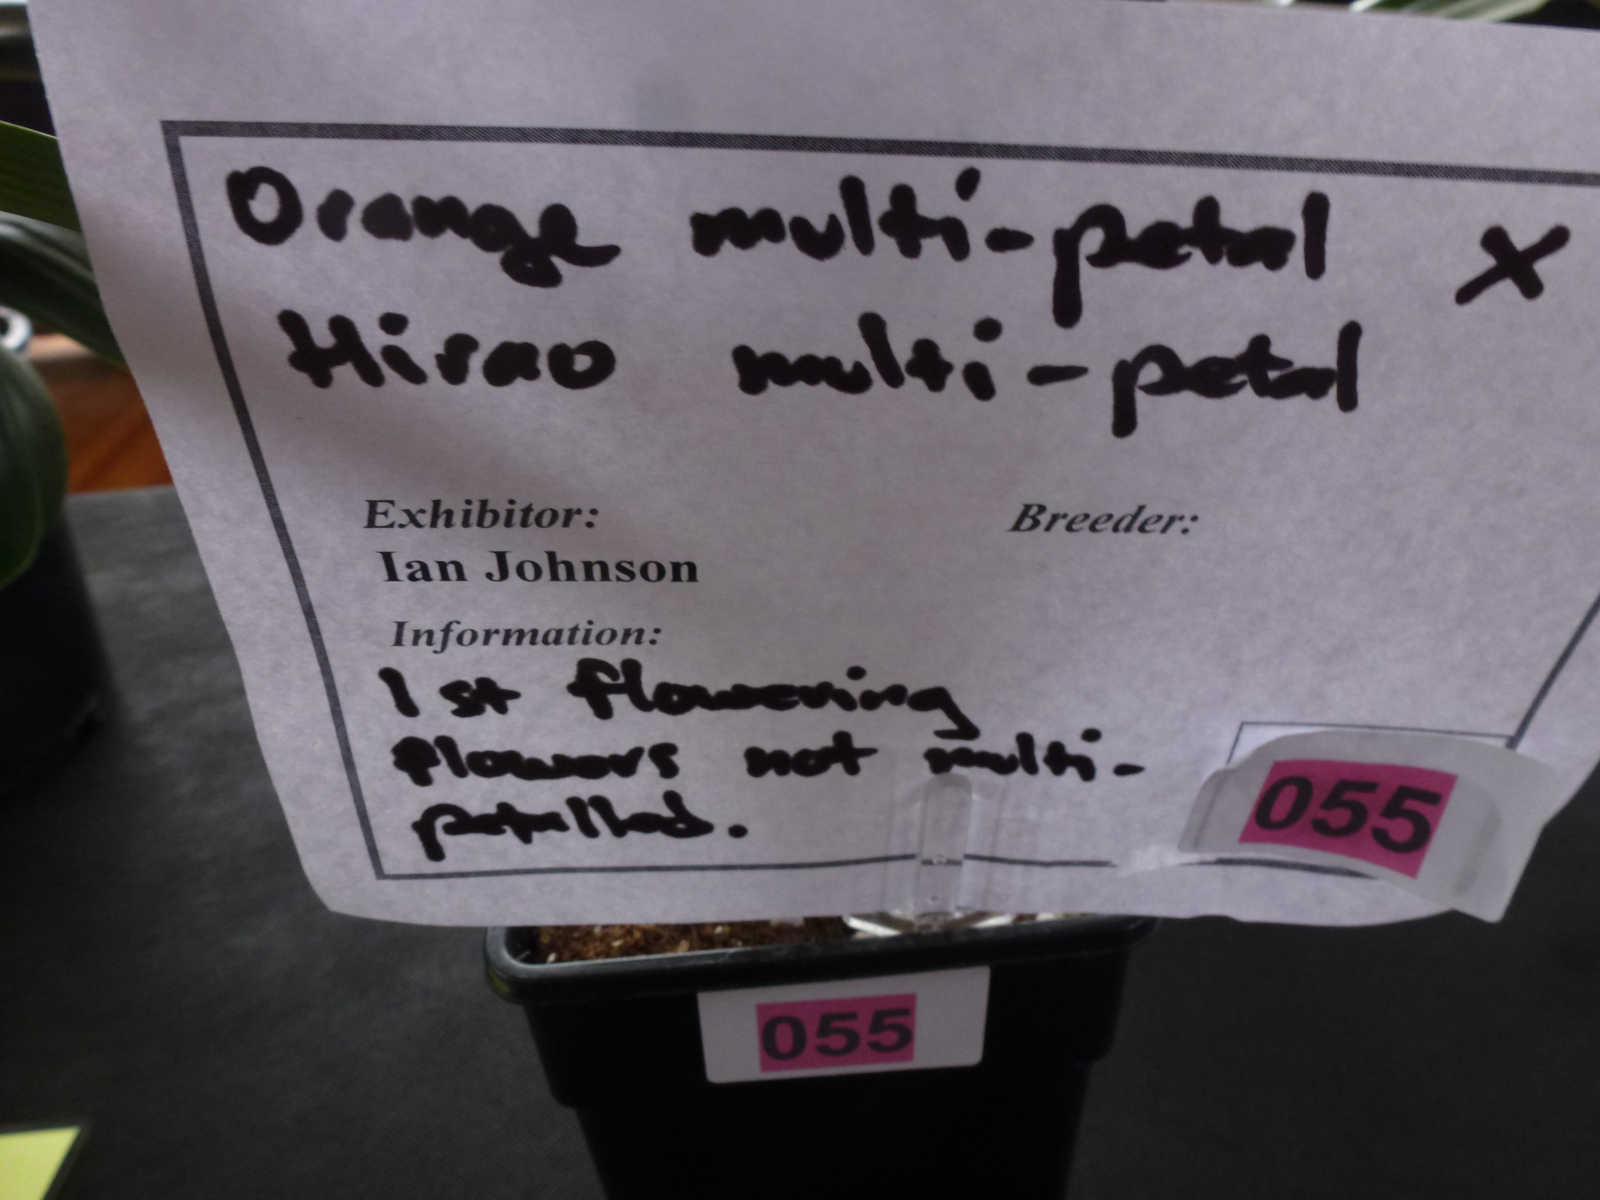 Orange multi-petal X
Hirao multi-petal
Exhibitor: Breeder:
Ian Johnson
Information:
1st flowering
flowers not multi-
petalled.
055
055